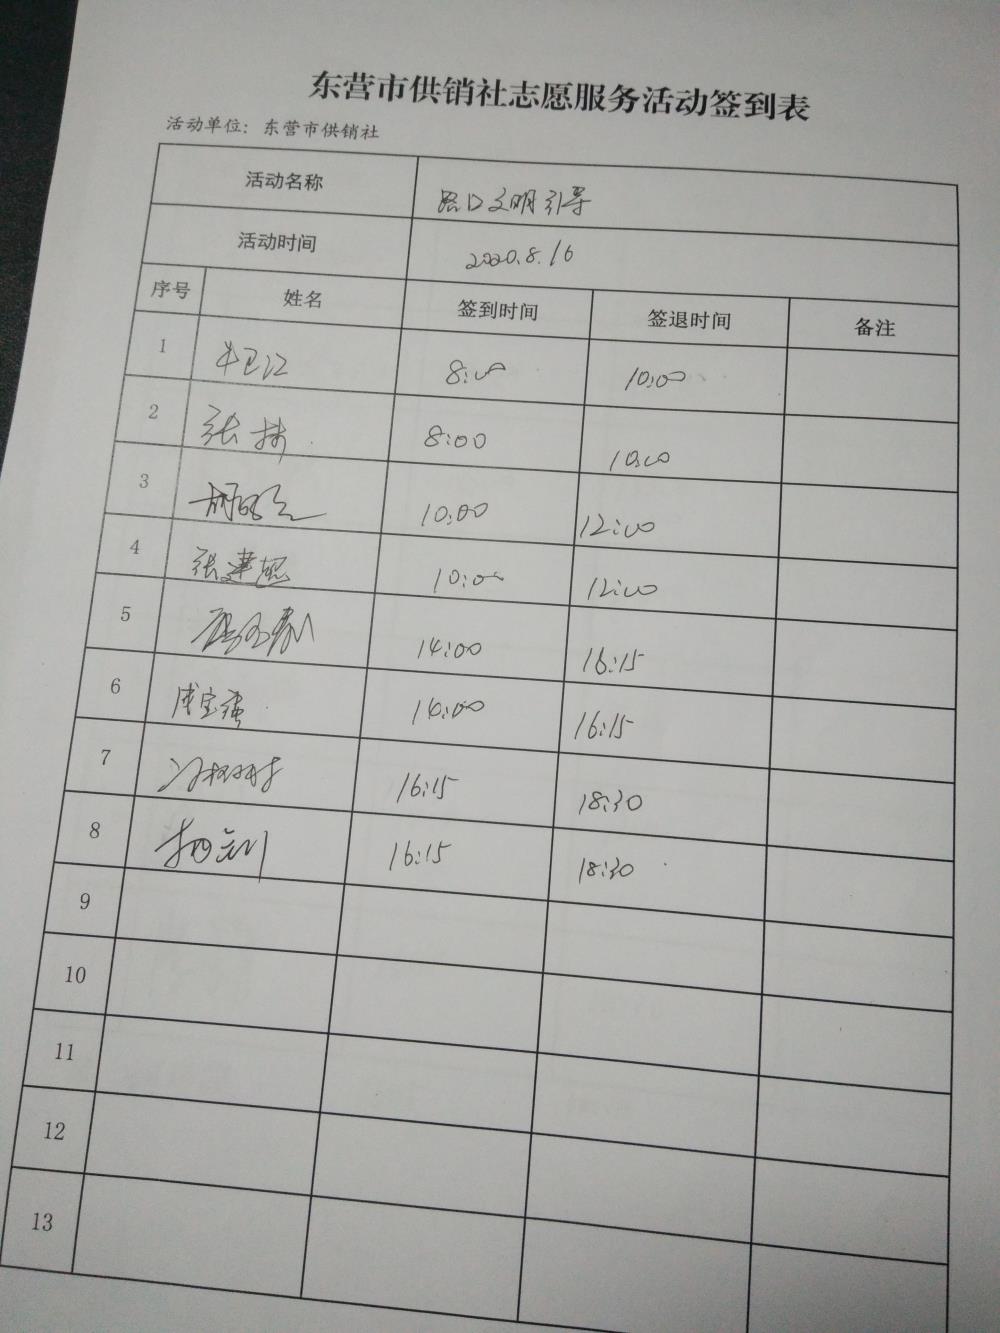 东营市供销社志愿服务活动签到表
活动单位：东营市供销社
活动名称 路口文明引导
活动时间 2020.8.16
序号 姓名 签到时间 签退时间 备注
1 牛卫江 8:00 10:00
2 张 8:00 10:00
3 10:00 12:00
4 张建 10:00 12:00
5 14:00 16:15
6 成宝 14:00 16:15
7 16:15 18:30
8 16:15 18:30
9
10
11
12
13